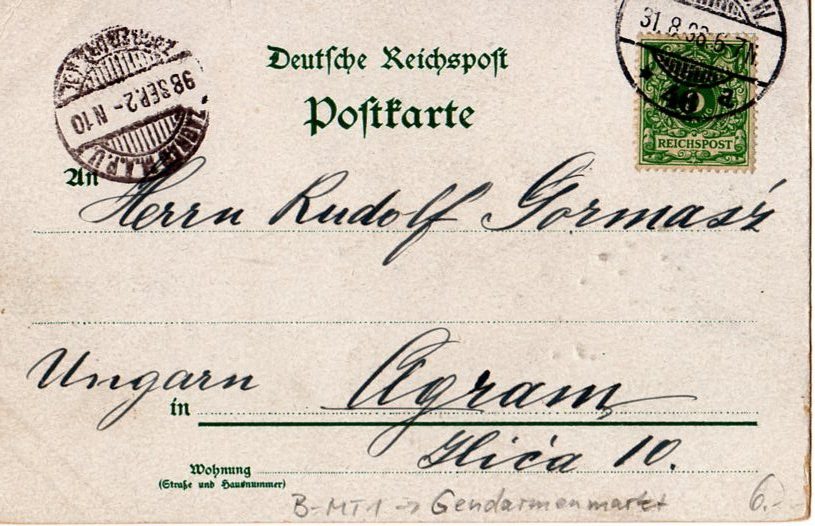 Deutsche Reichspost
Postkarte
31.8.98.6-7N
REICHSPOST
98 SEP. 2 - N 10
An Herrn Rudolf Gormasź
Ungarn
in Agram,
Ilića 10.
Wohnung
(Straße und Hausnummer)
B-MT1 → Gendarmenmarkt
6.-